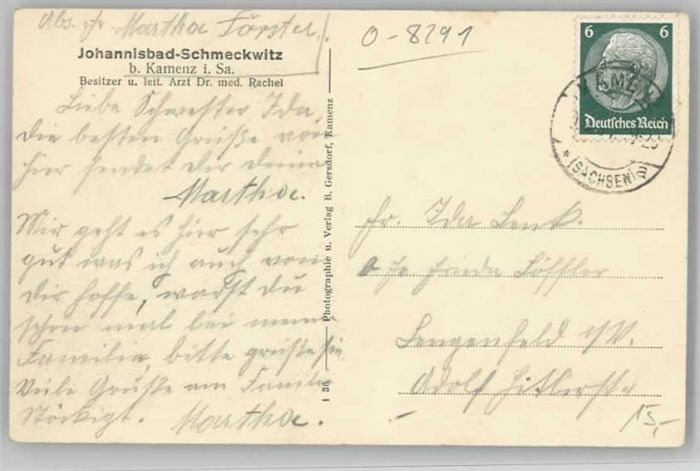 Abs. Fr. Martha Förster
Johannisbad-Schmeckwitz
b. Kamenz i. Sa.
Besitzer u. leit. Arzt Dr. med. Rachel
Liebe Schwester Ida,
die besten Grüße von
hier sendet dir deine
Martha.
Mir geht es hier sehr
gut was ich auch von
dir hoffe, warst du
schon mal bei meine
Familie, bitte grüße sie
Viele Grüße am Familie
Stöckigt. Martha.
1 36
Photographie u. Verlag B. Gersdorf, Kamenz
0-8291
6 6
Deutsches Reich
(SACHSEN)
Fr. Ida Lenk.
Frieda Löffler
Lengenfeld i/V.
Adolf Hitlerstr
15,-